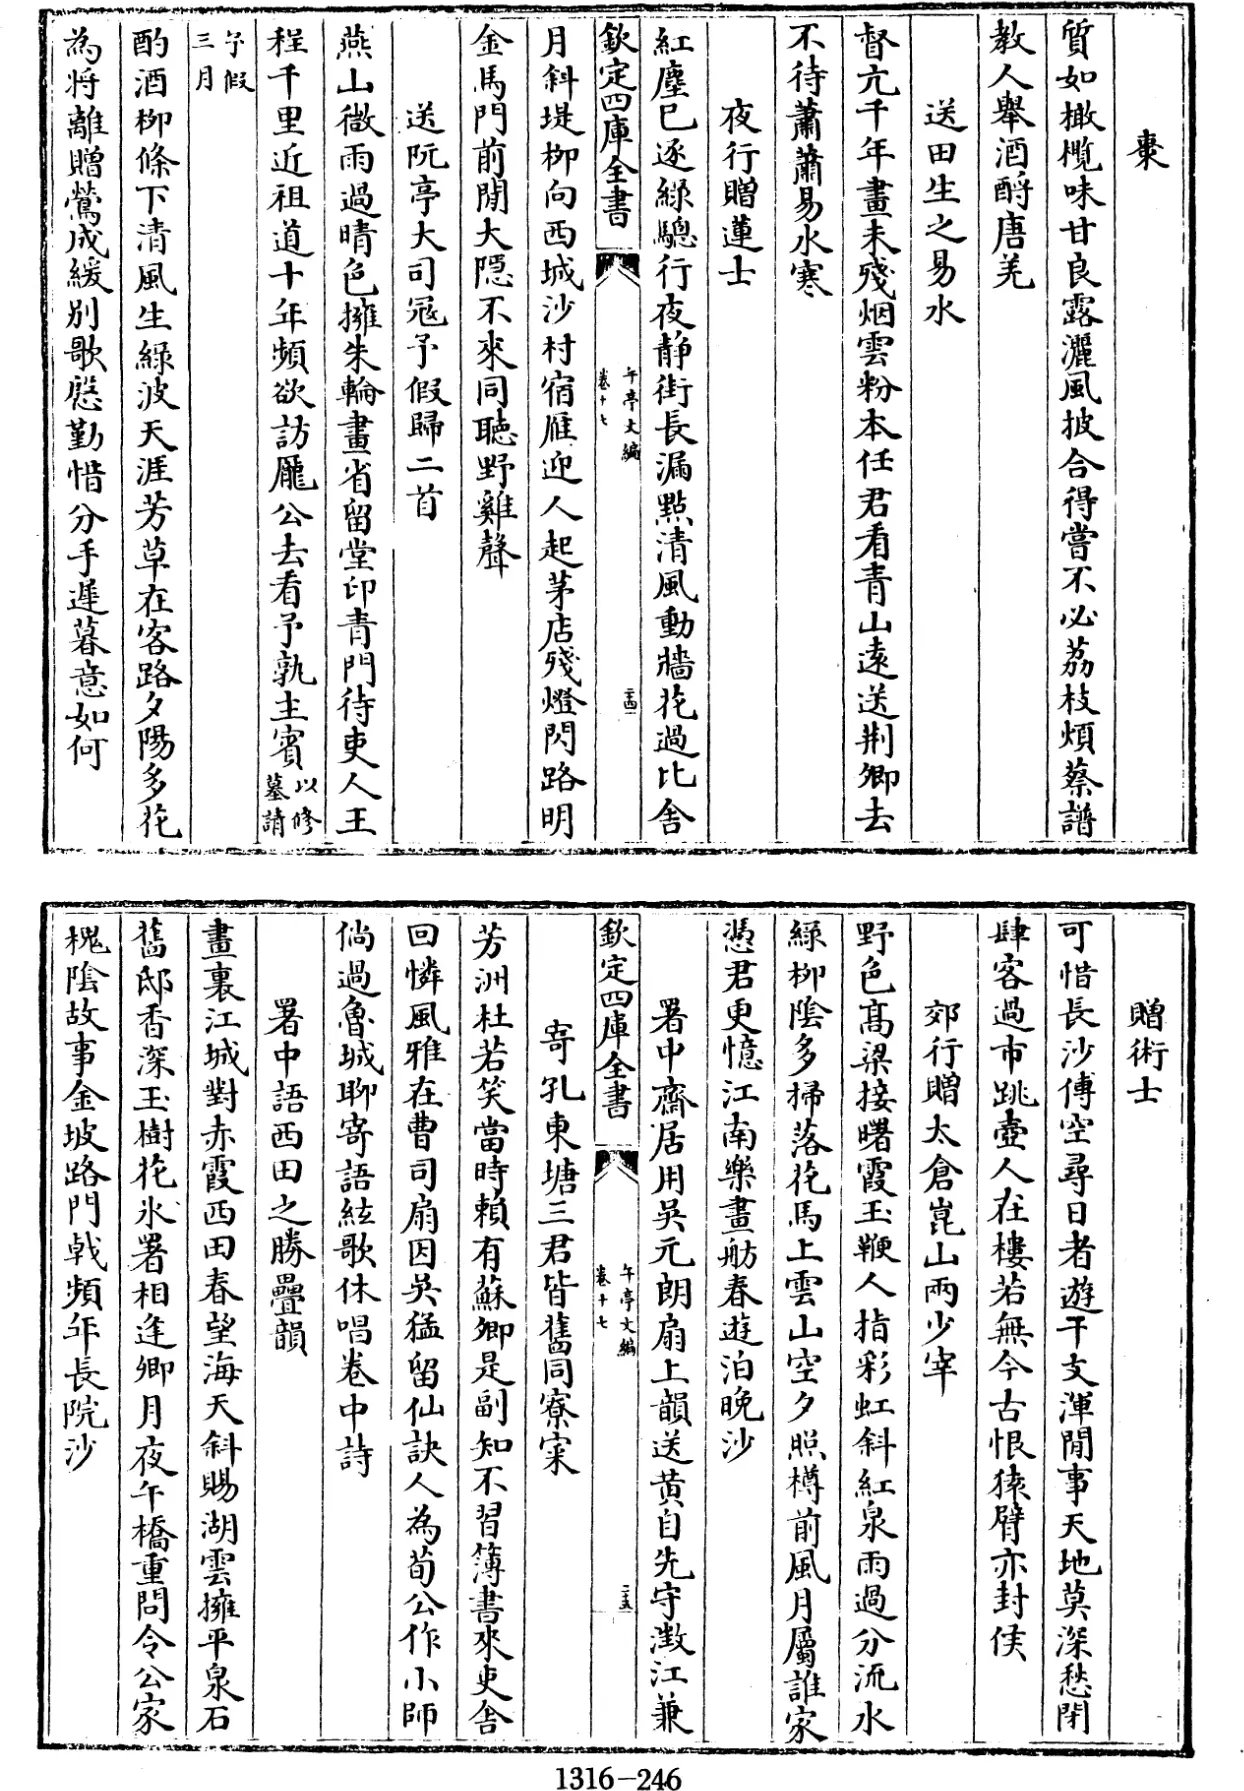 棗
質如橄欖味甘良露灑風披合得嘗不必荔枝煩蔡譜
教人舉酒酹唐羌
送田生之易水
督亢千年畫未殘烟雲粉本任君看青山遠送荆卿去
不待蕭蕭易水寒
夜行贈蓮士
紅塵已逐緑驄行夜静街長漏點清風動牆花過比舍
欽定四庫全書
午亭文編
卷十七
二十四
月斜堤柳向西城沙村宿雁迎人起茅店殘燈閃路明
金馬門前閒大隱不來同聽野雞聲
送阮亭大司冦予假歸二首
燕山微雨過晴色擁朱輪畫省留堂印青門待吏人王
程千里近祖道十年頻欲訪龎公去看予孰主賓以修墓請
予假三月
酌酒柳條下清風生緑波天涯芳草在客路夕陽多花
為將離贈鶯成緩别歌慇勤惜分手遲暮意如何
贈術士
可惜長沙傅空尋日者遊干支渾閒事天地莫深愁閉
肆客過市跳壺人在樓若無今古恨猿臂亦封侯
郊行贈太倉崑山兩少宰
野色高梁接曙霞玉鞭人指彩虹斜紅泉雨過分流水
緑柳陰多掃落花馬上雲山空夕照樽前風月屬誰家
憑君更憶江南樂畫舫春遊泊晚沙
署中齋居用吳元朗扇上韻送黄自先守澂江兼
欽定四庫全書
午亭文編
卷十七
二十五
寄孔東塘三君皆舊同寮寀
芳洲杜若笑當時賴有蘇卿是副知不習簿書來吏舍
回憐風雅在曹司扇因吳猛留仙訣人為荀公作小師
倘過魯城聊寄語絃歌休唱卷中詩
署中語西田之勝疊韻
畫裏江城對赤霞西田春望海天斜賜湖雲擁平泉石
舊邸香深玉樹花氷署相逢卿月夜午橋重問令公家
槐陰故事金坡路門戟頻年長院沙
1316-246